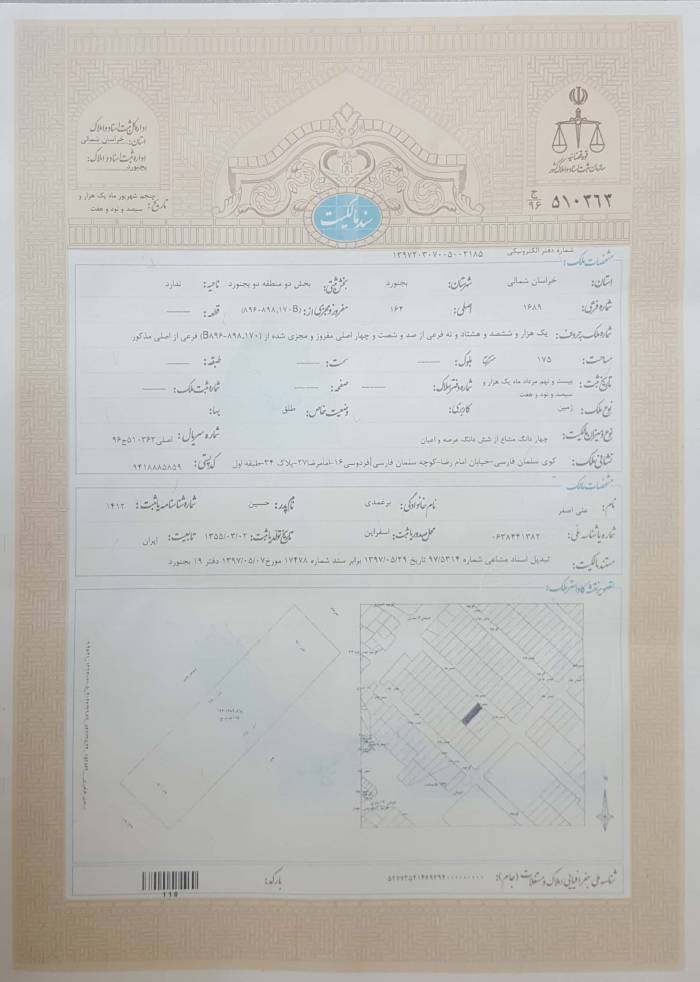 قوه قضائیه
سازمان ثبت اسناد و املاک کشور
۵۱۰۳۶۳ ج ۹۶
اداره کل ثبت اسناد و املاک
استان: خراسان شمالی
اداره ثبت اسناد و املاک:
بجنورد
تاریخ: پنجم شهریور ماه یک هزار و
سیصد و نود و هفت
سند مالکیت
شماره دفتر الکترونیکی ۱۳۹۷۲۰۳۰۷۰۰۵۰۰۲۱۸۵
مشخصات ملک:
استان: خراسان شمالی شهرستان: بجنورد بخش ثبتی: بخش دو منطقه دو بجنورد ناحیه: ندارد
شماره فرعی: ۱۶۸۹ اصلی: ۱۶۴ مفروز و مجزی از: (۸۹۶-۸۹۸,۱۷۰B) قطعه: ------
شماره ملک بحروف: یک هزار و ششصد و هشتاد و نه فرعی از صد و شصت و چهار اصلی مفروز و مجزی شده از (B۸۹۶-۸۹۸,۱۷۰) فرعی از اصلی مذکور
مساحت: ۱۷۵ مترمربع بلوک: ------ سمت: ------ طبقه: ------
تاریخ ثبت: بیست و نهم مرداد ماه یک هزار و سیصد و نود و هفت شماره دفتر املاک: ------ صفحه: ------ شماره ثبت ملک: ------
نوع ملک: زمین کاربری: وضعیت خاص: طلق بهاء:
نوع و میزان مالکیت: چهار دانگ مشاع از شش دانگ عرصه و اعیان شماره سریال: اصلی ۵۱۰۳۶۳ ج ۹۶
نشانی ملک: کوی سلمان فارسی-خیابان امام رضا-کوچه سلمان فارسی[فردوسی۱۶-امامرضا۲۷-پلاک ۳۴-طبقه اول کد پستی: ۹۴۱۸۸۸۵۸۵۹
مشخصات مالک
نام: علی اصغر نام خانوادگی: برغمدی نام پدر: حسین شماره شناسنامه یا ثبت: ۱۴۱۲
شماره یا شناسه ملی: ۰۶۳۸۴۴۱۳۸۲ محل صدور یا ثبت: اسفراین تاریخ تولد یا ثبت: ۱۳۵۵/۰۳/۰۲ تابعیت: ایران
مستند مالکیت: تبدیل اسناد مشاعی شماره ۹۷/۵۳۱۴ تاریخ ۱۳۹۷/۰۵/۲۹ برابر سند شماره ۱۷۴۷۸ مورخ ۱۳۹۷/۰۵/۰۷ دفتر ۱۹ بجنورد
تصویر نقشه کاداستر ملک:
شناسه ملی جغرافیایی املاک و مستغلات (جام):
بارکد:
110